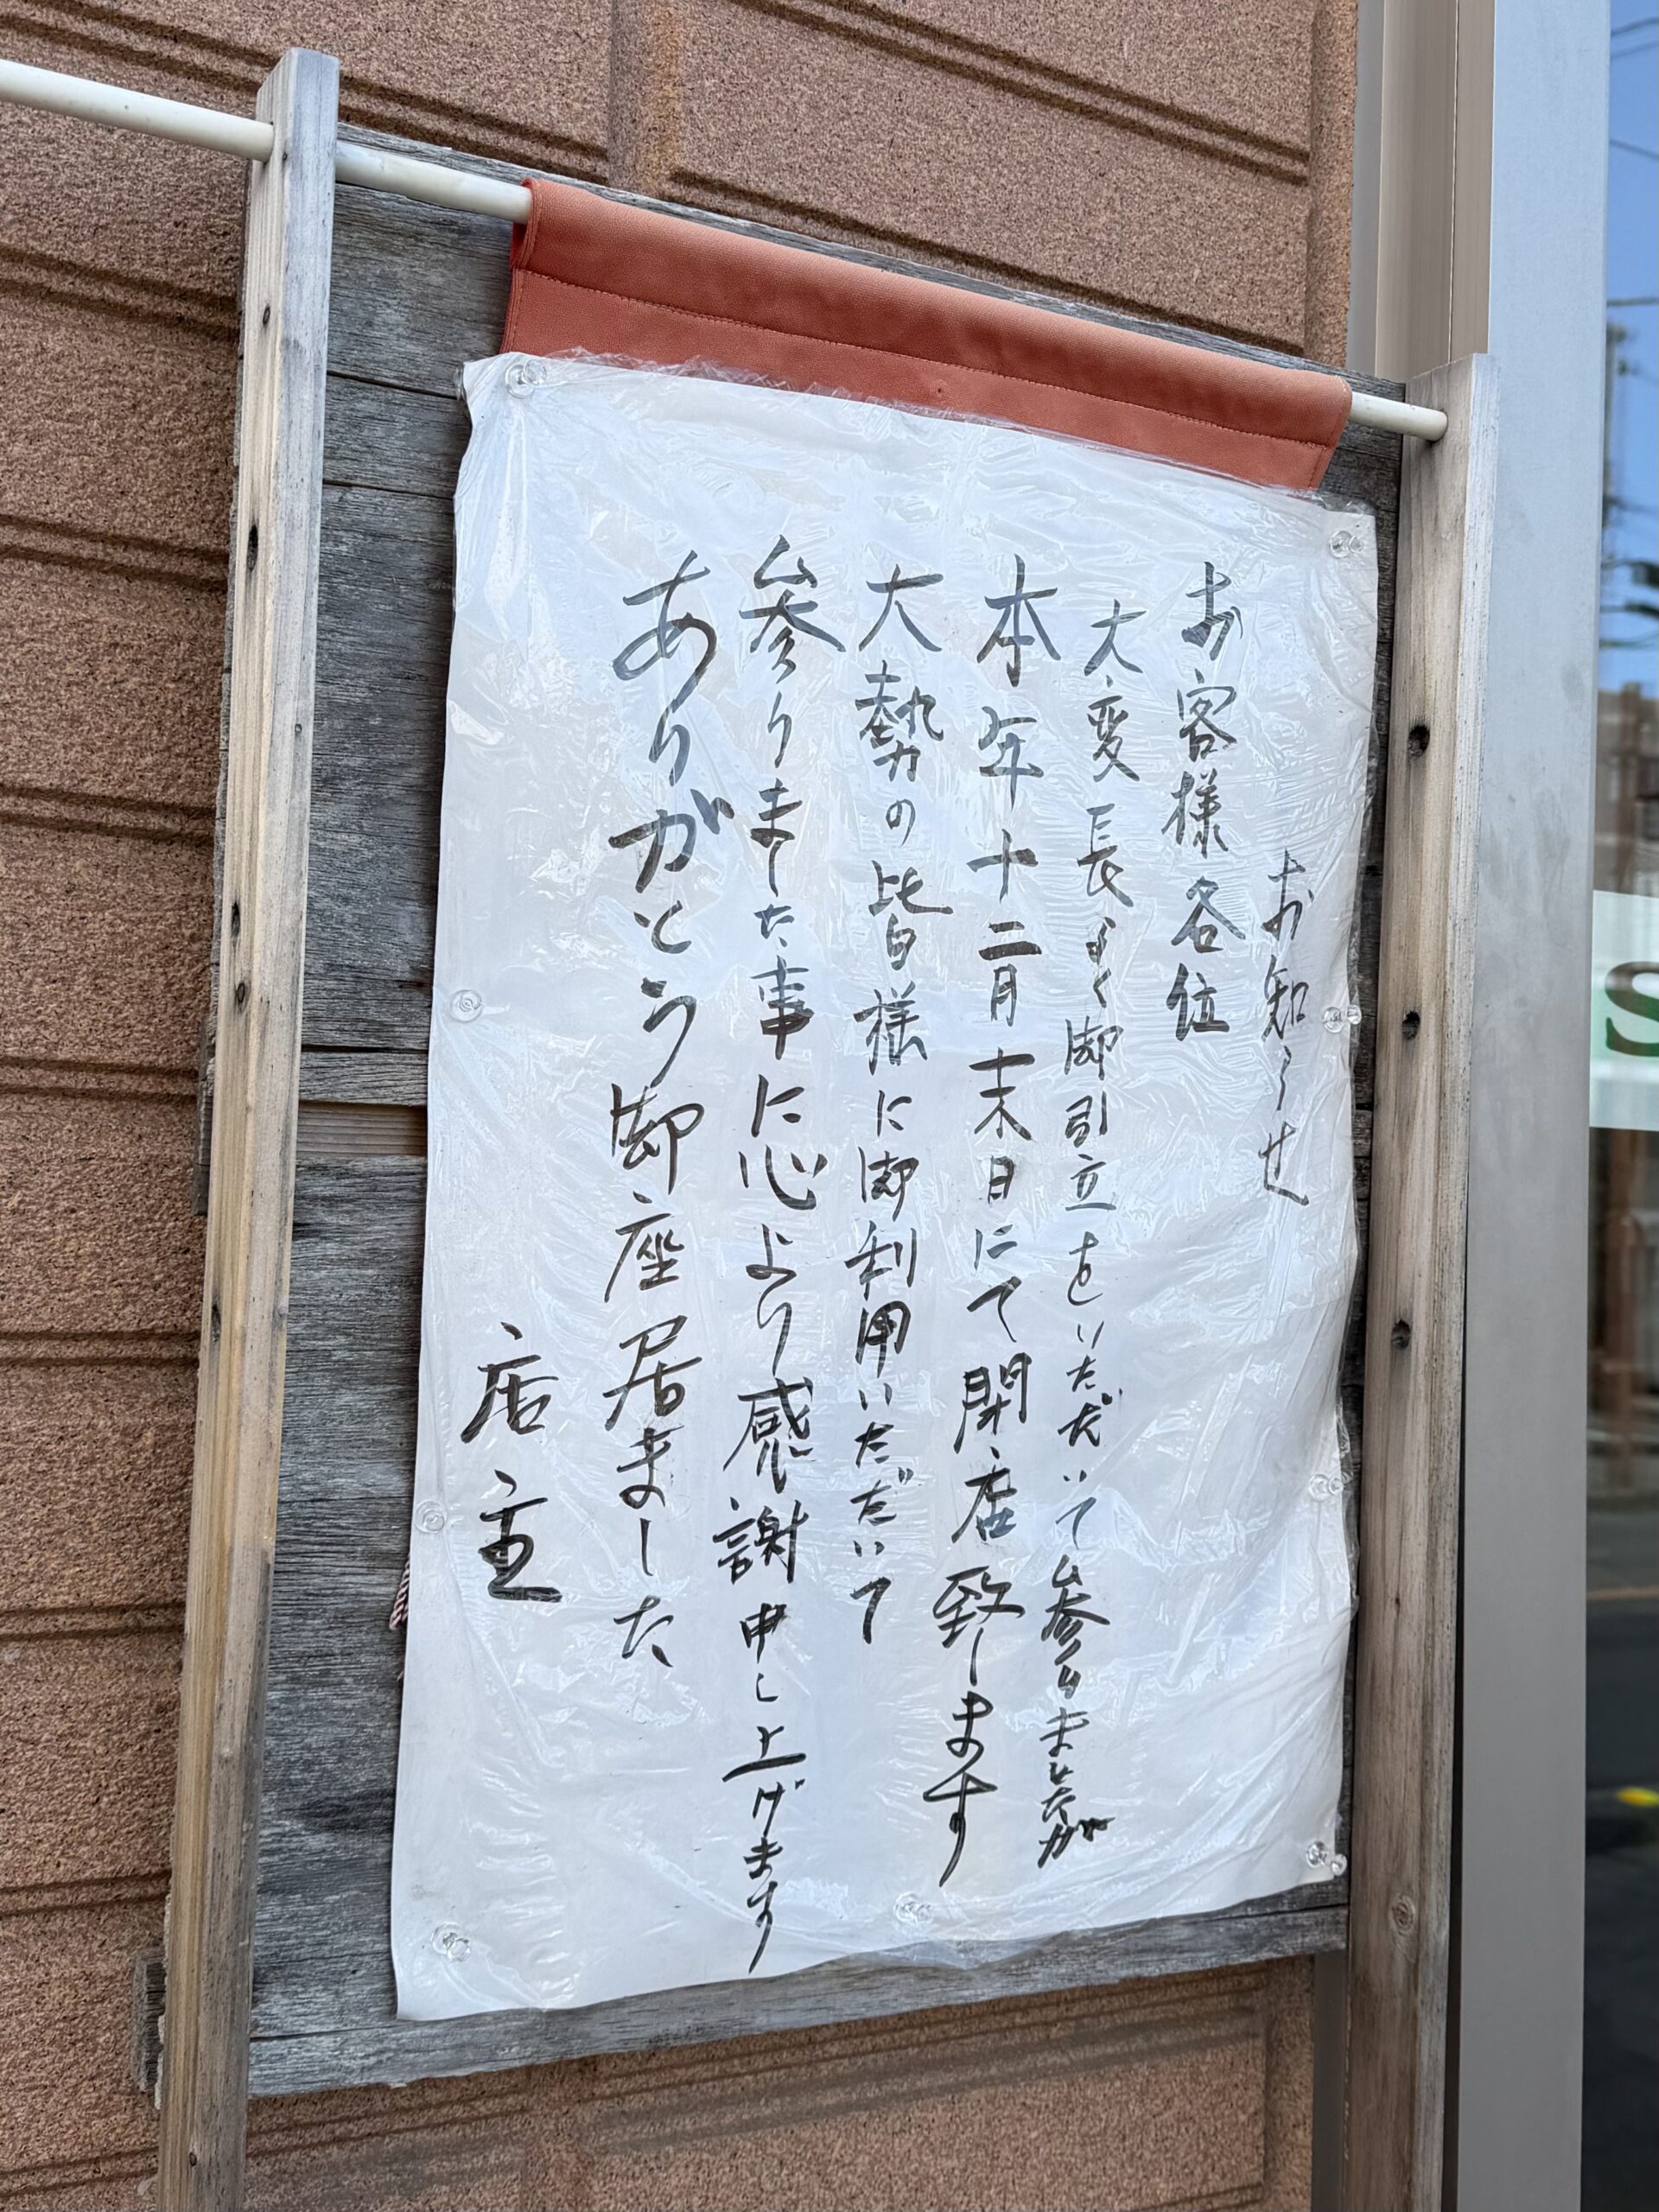 お知らせ
お客様各位
大変長よく御引立をいただいて参りましたが
本年十二月末日にて閉店致します
大勢の皆様に御利用いただいて
参りました事に心より感謝申し上げます
ありがとう御座居ました
店主
S